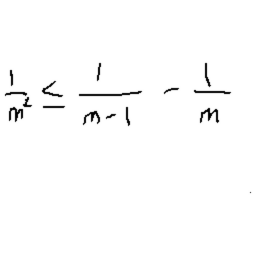 1/m² ≤ 1/(m-1) - 1/m